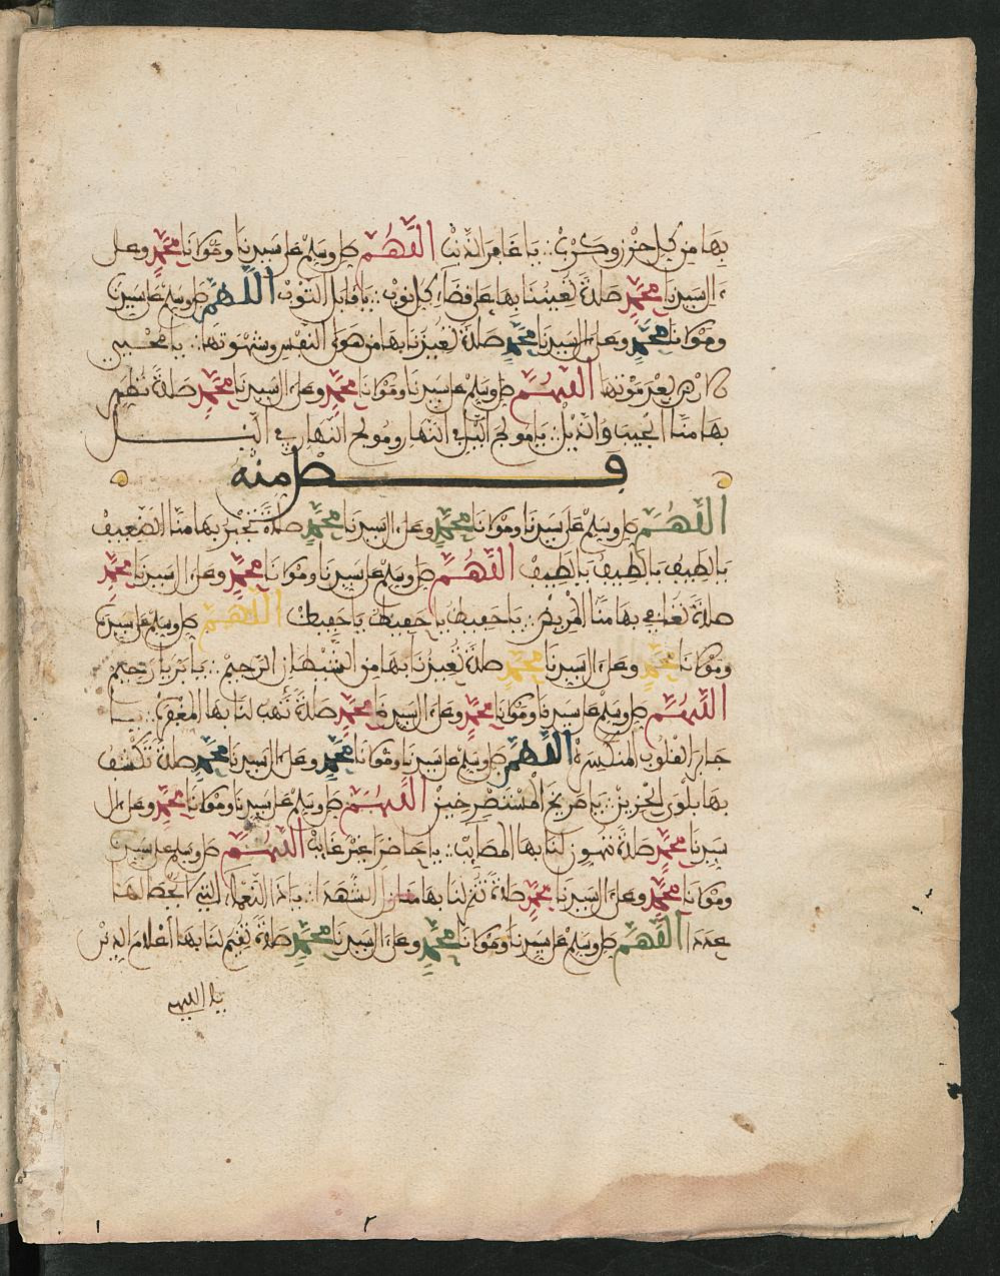 بها من كل حزن وكرب يا غافر الذنب اللهم صل وسلم على سيدنا ومولانا محمد وعلى
ءال سيدنا محمد صلاة تعيننا بها على قضاء كل نوب يا قابل التوب اللهم صل وسلم على سيدنا
ومولانا محمد وعلى ءال سيدنا محمد صلاة تعيذنا بها من هوى النفس وشهوتها يا محيي
الارض بعد موتها اللهم صل وسلم على سيدنا ومولانا محمد وعلى ءال سيدنا محمد صلاة تطهر
بها منا الجيب والذيل يا مولج الليل في النهار ومولج النهار في الليل
فصل منه
اللهم صل وسلم على سيدنا ومولانا محمد وعلى ءال سيدنا محمد صلاة تجبر بها منا الضعيف
يا لطيف يا لطيف يا لطيف اللهم صل وسلم على سيدنا ومولانا محمد وعلى ءال سيدنا محمد
صلاة تعافي بها منا المريض يا حفيظ يا حفيظ يا حفيظ اللهم صل وسلم على سيدنا
ومولانا محمد وعلى ءال سيدنا محمد صلاة تعيذنا بها من الشيطان الرجيم يا بر يا رحيم
اللهم صل وسلم على سيدنا ومولانا محمد وعلى ءال سيدنا محمد صلاة تهب لنا بها المغفرة يا
جابر القلوب المنكسرة اللهم صل وسلم على سيدنا ومولانا محمد وعلى ءال سيدنا محمد صلاة تكشف
بها بلوى الحزين يا صريخ المستصرخين اللهم صل وسلم على سيدنا ومولانا محمد وعلى ءال
سيدنا محمد صلاة تهون لنا بها المصايب يا حاضرا غير غايب اللهم صل وسلم على سيدنا
ومولانا محمد وعلى ءال سيدنا محمد صلاة لنا بها منازل الشهدا يا ذا النعماء التي لا تحصا لها
عددا اللهم صل وسلم على سيدنا ومولانا محمد وعلى ءال سيدنا محمد صلاة تقيم لنا بها أعلام الدين
يا إله
١ ٢